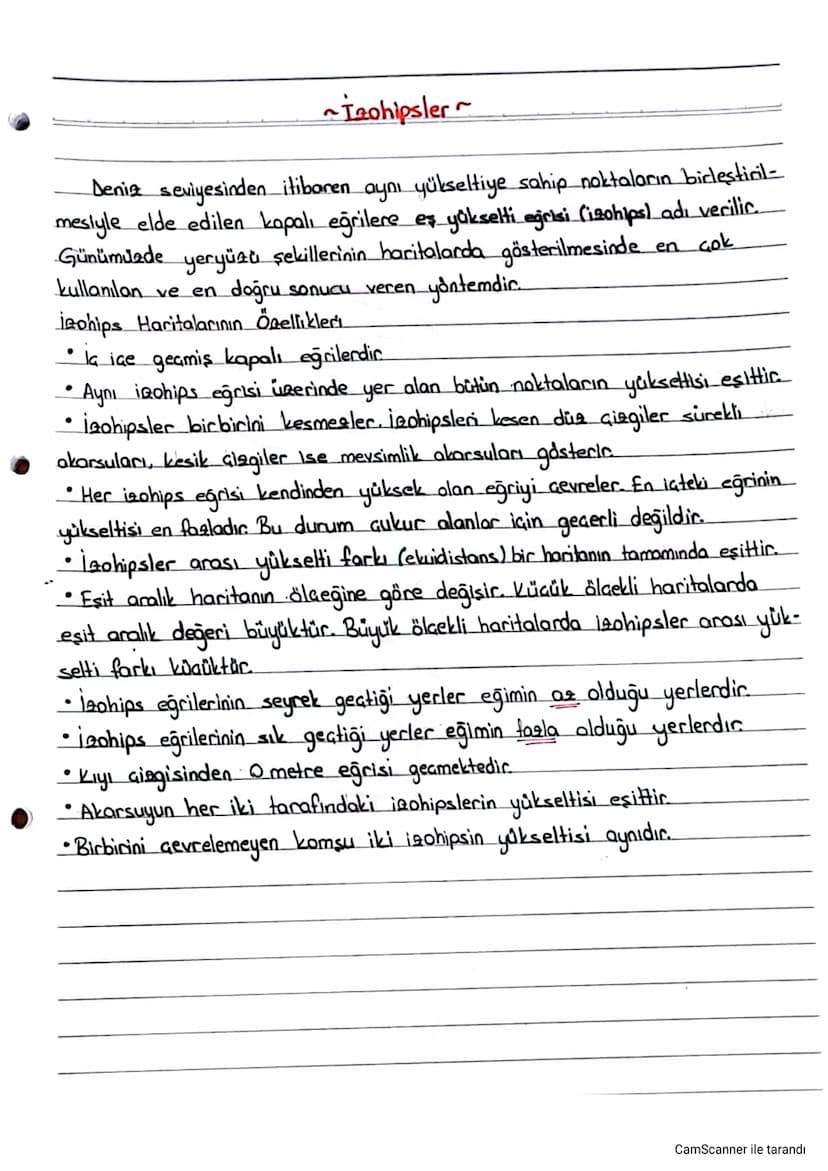 ~İzohipsler~
Deniz seviyesinden itibaren aynı yükseltiye sahip noktaların birleştiril-
mesiyle elde edilen kapalı eğrilere eş yükselti eğrisi (izohips) adı verilir.
Günümüzde yeryüzü şekillerinin haritalarda gösterilmesinde en çok
kullanılan ve en doğru sonucu veren yöntemdir.
İzohips Haritalarının Özellikleri
• İç içe geçmiş kapalı eğrilerdir.
• Aynı izohips eğrisi üzerinde yer alan bütün noktaların yükseltisi eşittir.
• İzohipsler birbirini kesmezler. İzohipsleri kesen düz çizgiler sürekli
akarsuları, kesik çizgiler ise mevsimlik akarsuları gösterir.
• Her izohips eğrisi kendinden yüksek olan eğriyi çevreler. En içteki eğrinin
yükseltisi en fazladır. Bu durum çukur alanlar için geçerli değildir.
• İzohipsler arası yükselti farkı (ekuidistans) bir haritanın tamamında eşittir.
• Eşit aralık haritanın ölçeğine göre değişir. Küçük ölçekli haritalarda
eşit aralık değeri büyüktür. Büyük ölçekli haritalarda izohipsler arası yük-
selti farkı küçüktür.
• İzohips eğrilerinin seyrek geçtiği yerler eğimin az olduğu yerlerdir.
• İzohips eğrilerinin sık geçtiği yerler eğimin fazla olduğu yerlerdir.
• Kıyı çizgisinden 0 metre eğrisi geçmektedir.
• Akarsuyun her iki tarafındaki izohipslerin yükseltisi eşittir.
• Birbirini çevrelemeyen komşu iki izohipsin yükseltisi aynıdır.
CamScanner ile tarandı